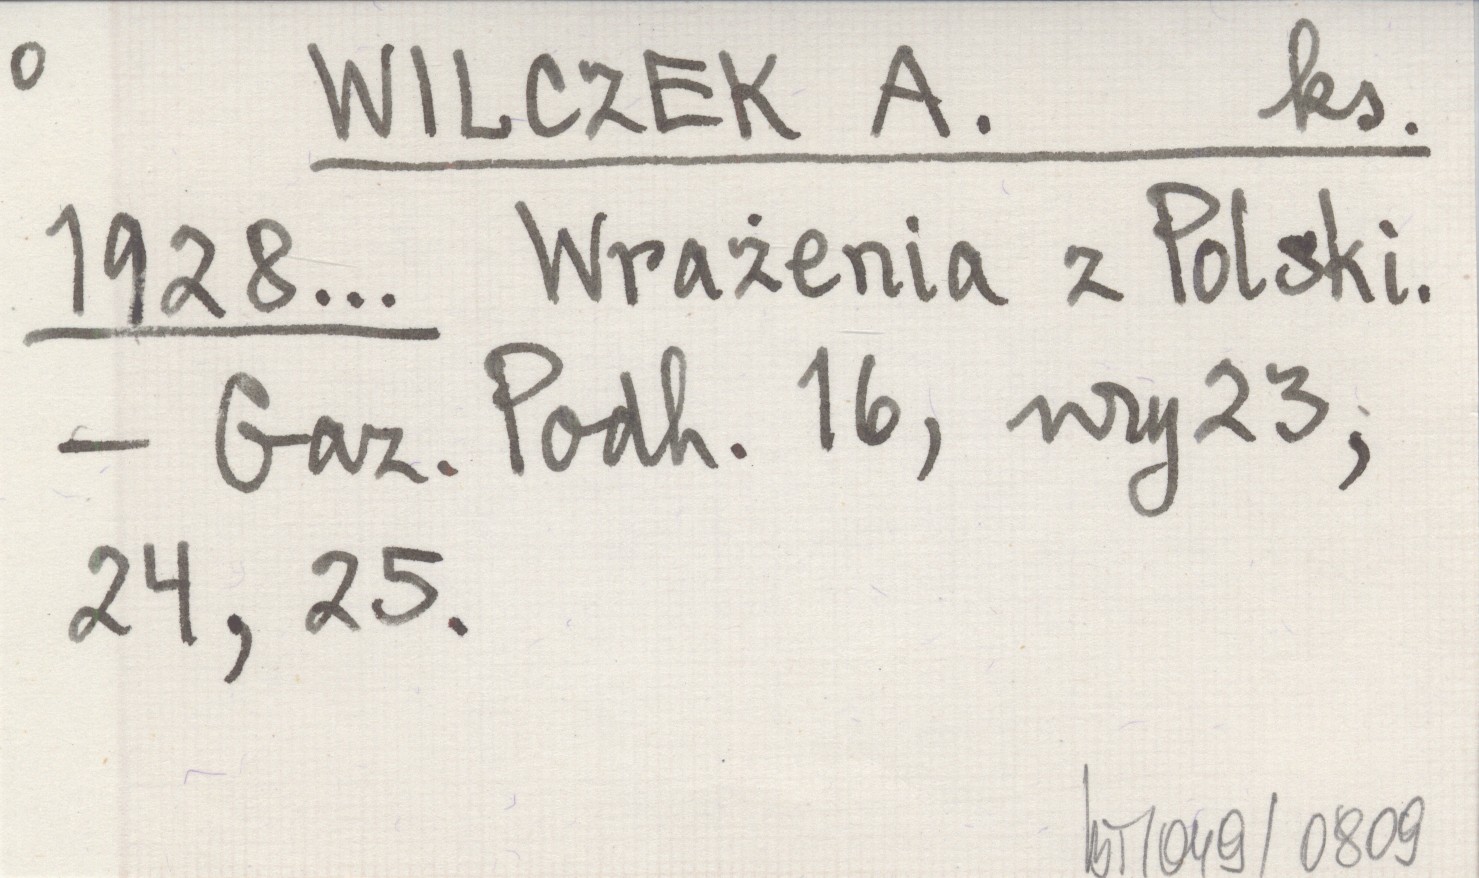 o WILCZEK A. ks.
1928... Wrażenia z Polski.
— Gaz. Podh. 16, nry 23;
24, 25.
/049/0809